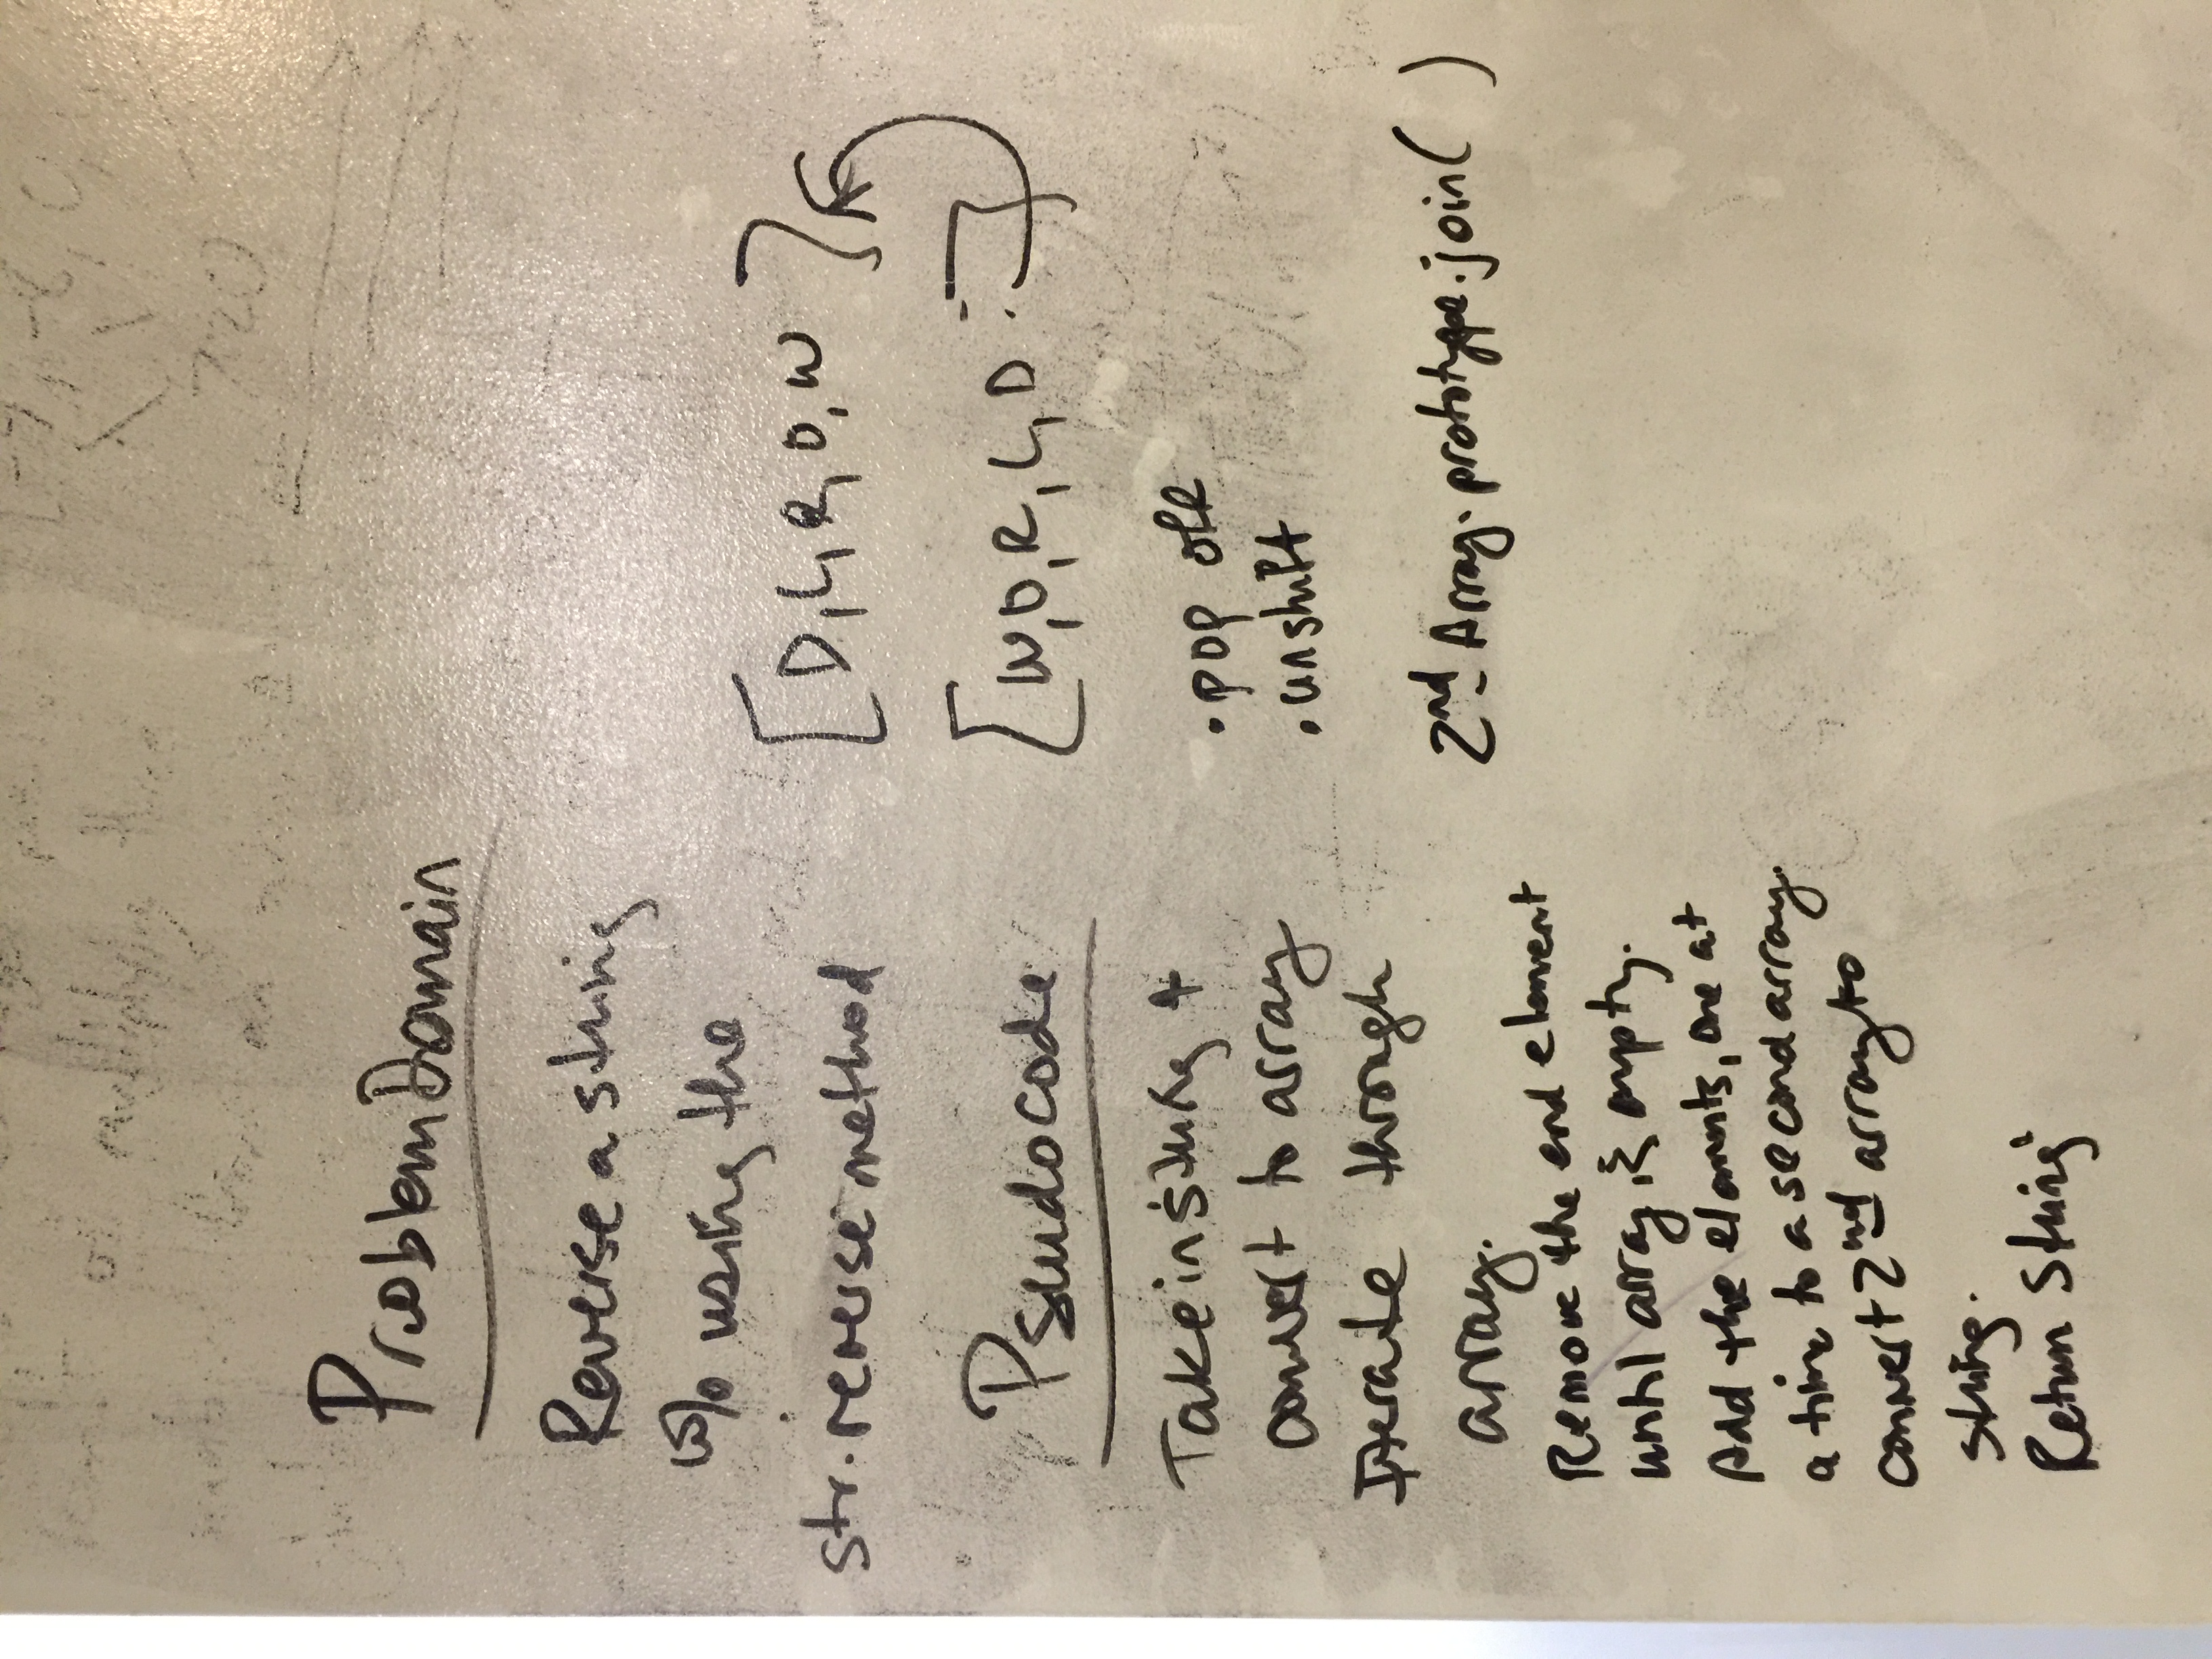 or multiply
an
Problem Domain
Reverse a string
w/o using the
str.reverse method
[D, L, R, O, W]
[W, O, R, L, D]
Pseudocode
Take in string +
convert to array
Iterate through
array.
Remove the end element
until array is empty.
Add the elements, one at
a time to a second array.
convert 2nd array to
string.
Return String
• pop off
• unshift
2nd Array.prototype.join( )